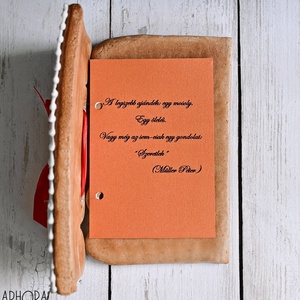 A legszebb ajándék: egy mosoly.
Egy ölelés.
Vagy még az sem-csak egy gondolat:
"Szeretlek"
(Müller Péter)
APHORA